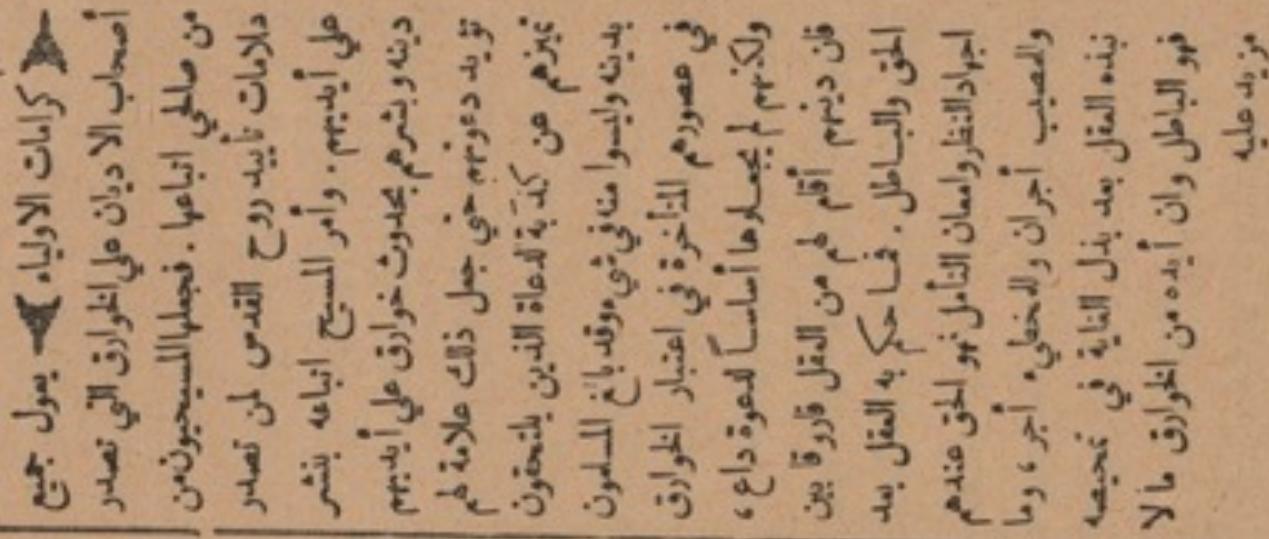 ﴿ كرامات الاولياء ﴾ يعول جميع
أصحاب الاديان علي الخوارق التي تصدر
من صالحي اتباعها . فجعلها المسيحيون من
دلامات تأييد روح القدس لمن تصدر
علي أيديهم . وأمر المسيح اتباعه بنشر
دينه وبشرهم بحدوث خوارق علي أيديهم
تؤيد دعوتهم حتي جعل ذلك علامة لهم
تميزهم عن كذبة الدعاة الذين يلتحقون
بدينه وليسوا منه في شيء وقد بالغ المسلمون
في عصورهم المتأخرة في اعتبار الخوارق
ولكنهم لم يجعلوها أساساً لدعوة داع ،
فان دينهم أقام لهم من العقل فاروقا بين
الحق والباطل . فما حكم به العقل بعد
اجهاد النظر وامعان التأمل فهو الحق عندهم
والمصيب أجران والمخطيء أجر ، وما
نبذه العقل بعد بذل الغاية في تمحيصه
فهو الباطل وان أيده من الخوارق ما لا
مزيد عليه